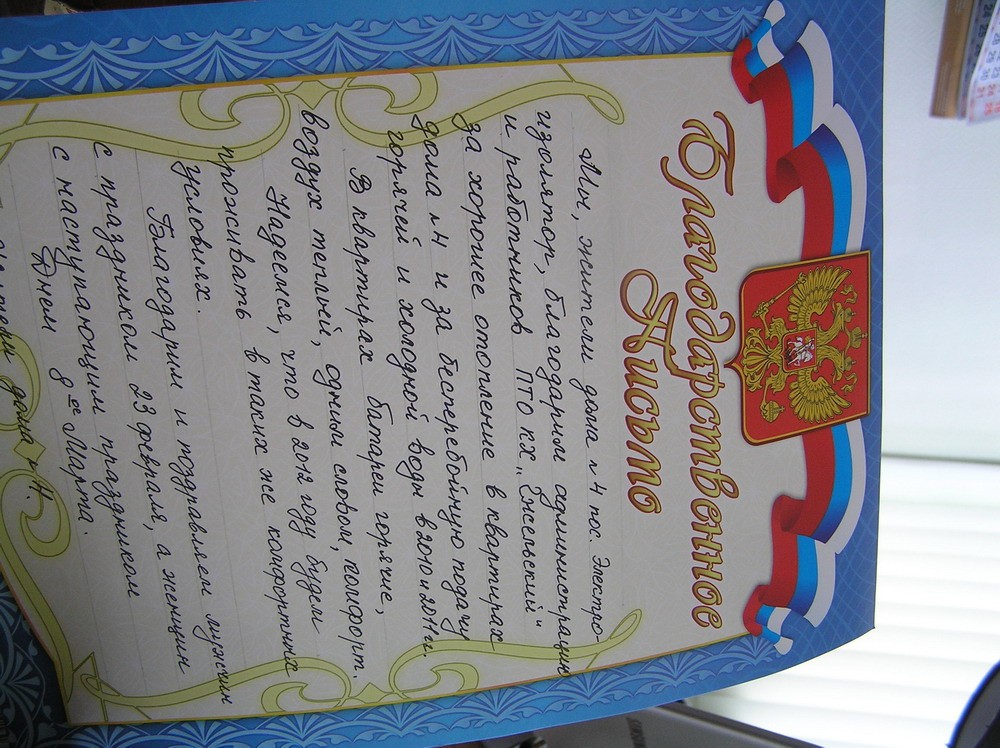 Благодарственное
Письмо
Мы, жители дома №4 пос. Электро-
изолятор, благодарим администрацию
и работников ПТО КХ „Гжельский"
за хорошее отопление в квартирах
дома №4 и за бесперебойную подачу
горячей и холодной воды в 2010 и 2011гг.
В квартирах батареи горячие,
воздух теплый, одним словом, комфорт.
Надеемся, что в 2012 году будем
проживать в таких же комфортных
условиях.
Благодарим и поздравляем мужчин
с праздником 23 февраля, а женщин
с наступающим праздником
Днем 8ое Марта.
дома №4.